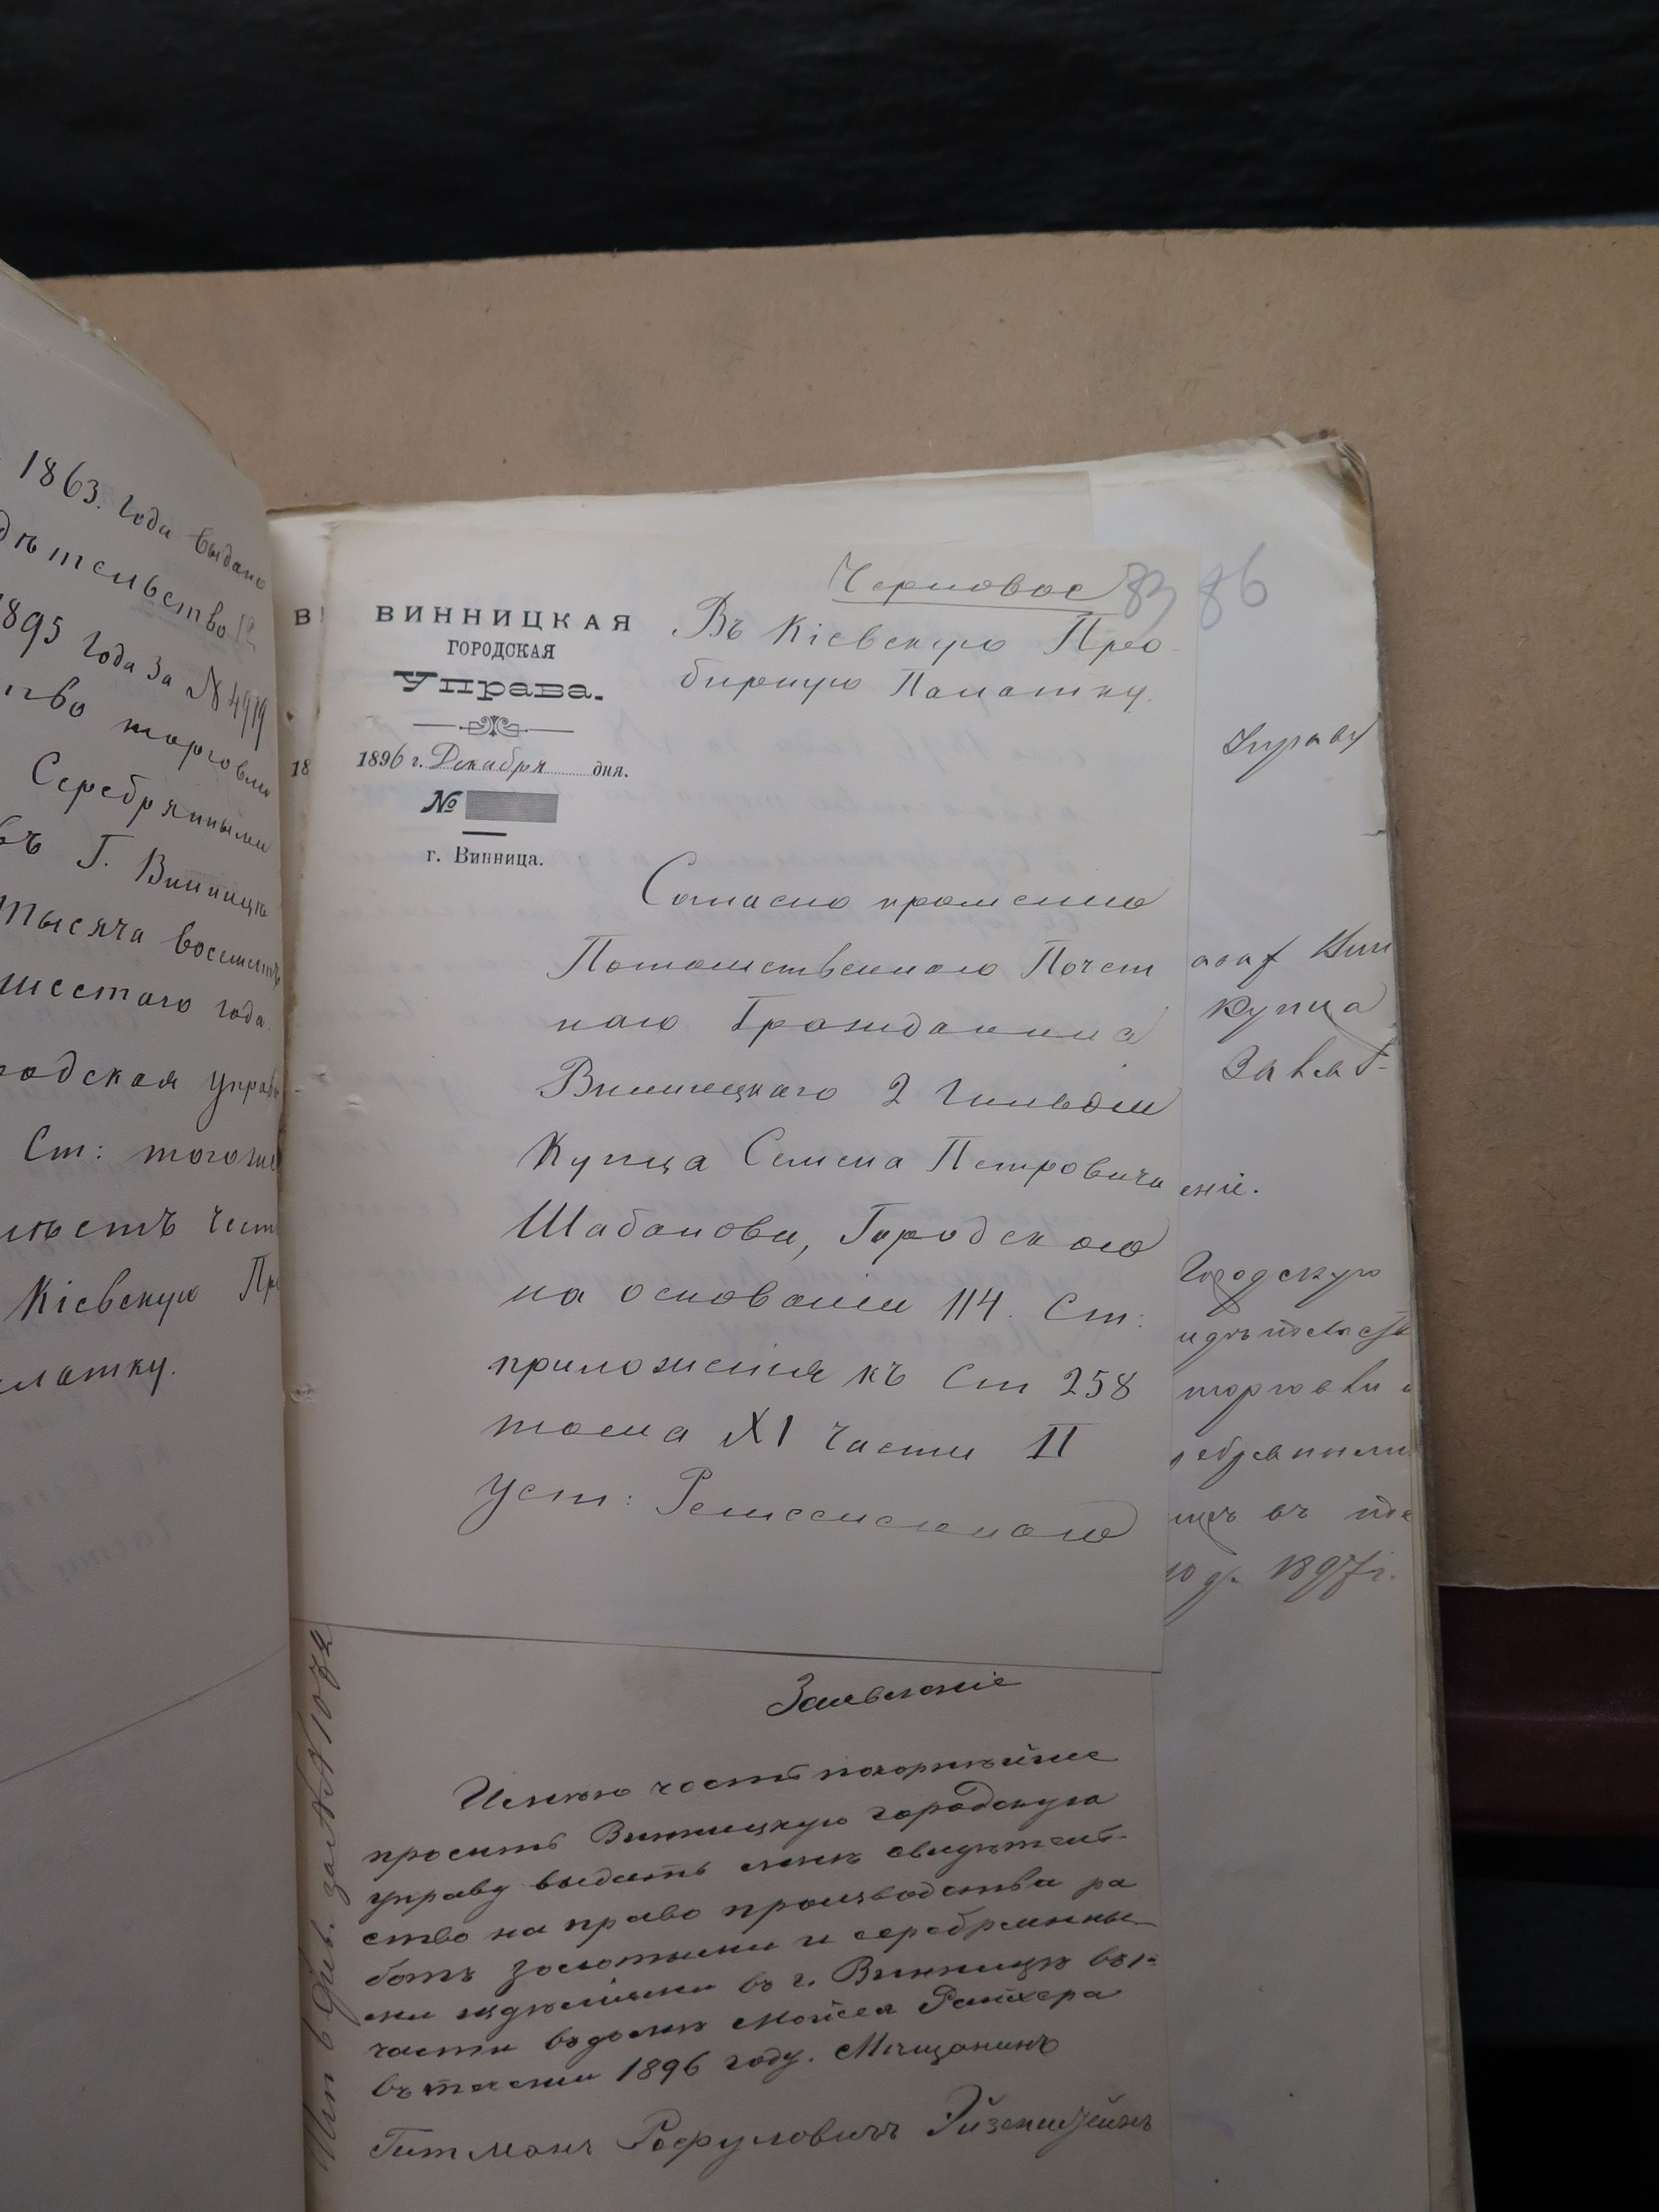 1863. года выдано
дѣтельство
1895 года за № 4919
ство торговли
Серебряными
въ Г. Винницѣ
тысяча восемьсотъ
шестаго года.
родская управа
Ст: тогоже
имѣетъ чест
Кіевскую Пр
латку.
Черновое
83 86
ВИННИЦКАЯ
ГОРОДСКАЯ
Управа.
1896 г. Декабря дня.
№
г. Винница.
Въ Кіевскую Про
бирную Палатку.
Согласно прошенію
Потомственнаго Почет
наго Гражданина
Винницкаго 2 гильдіи
Купца Семена Петровича
Шабанова, Городскаго
на основаніи 114. Ст:
приложенія къ Ст 258
тома XI части II
Уст: Ремесленнаго
Управу
Купца
еніе.
Городскую
торговли
въ
1897 г.
Заявленіе
Имѣю честь покорнѣйше
просить Винницкую городскую
управу выдать мнѣ свидѣтель-
ство на право производства ра
ботъ золотыми и серебрянны-
ми издѣліями въ г. Винницѣ въ 1-
части въ домѣ Мойсея
въ теченіи 1896 году. Мѣщанинъ
Гитманъ Рафуловичъ Эйзенштейнъ
№ 1072